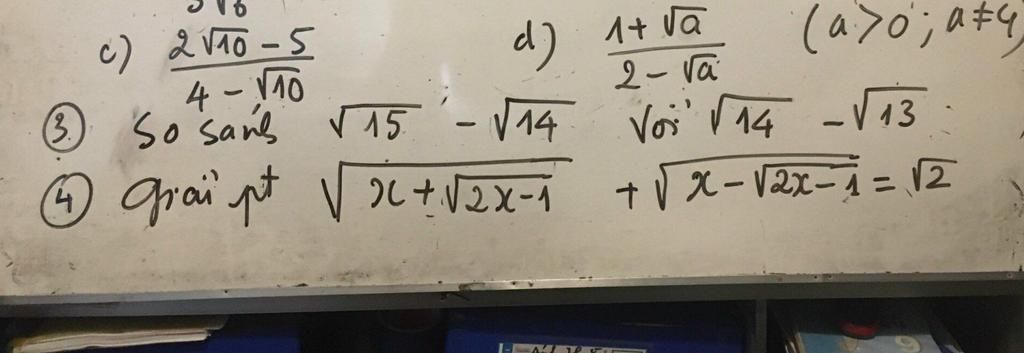 c) (2√10 - 5)/(4 - √10) d) (1 + √a)/(2 - √a) (a > 0 ; a ≠ 4)
③ So sánh √15 - √14 Với √14 - √13
④ Giải pt √(x + √(2x-1)) + √(x - √(2x-1)) = √2